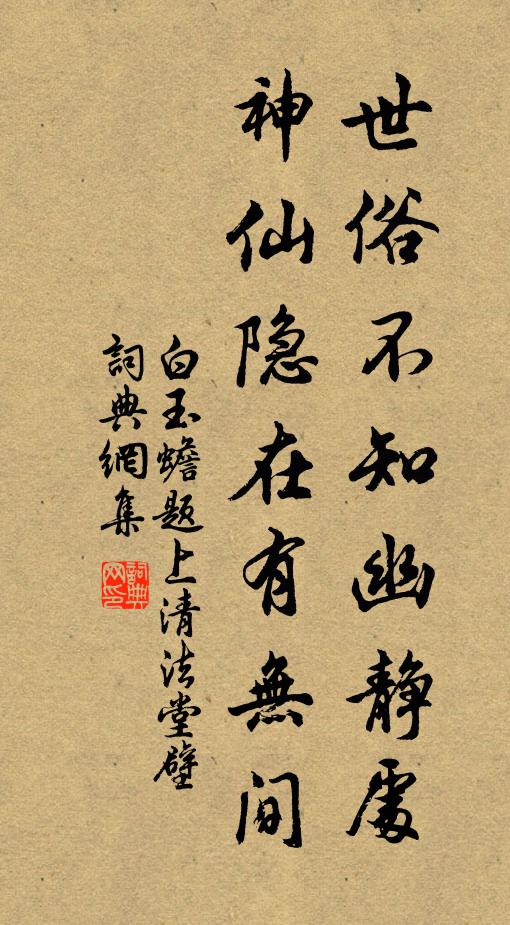 世俗不知幽静處
神仙隐在有無间
白玉蟾题上清法堂壁
詞典網集
詞典网印